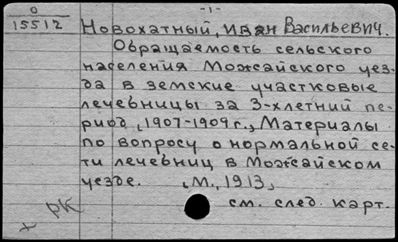 -1-
0
15512
Новохатный, Иван Васильевич.
Обращаемость сельского
населения Можайского уез-
да в земские участковые
лечебницы за 3-хлетний пе-
риод, 1907-1909 г., Материалы
по вопросу о нормальной се-
ти лечебниц в Можайском
уезде. М., 1913,
см. след. карт.
х РК